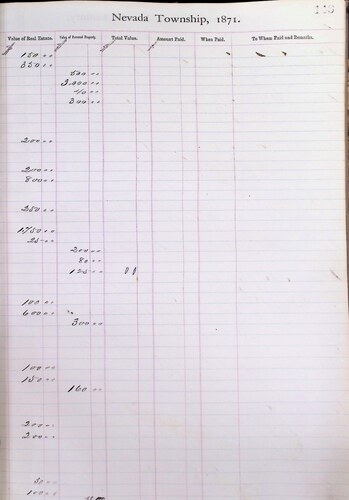 Nevada Township, 1871.
Value of Real Estate. Value of Personal Property. Total Value. Amount Paid. When Paid. To Whom Paid and Remarks.
150 00
350 00
500 00
3,000 00
40 00
300 00
200 00
200 00
800 00
250 00
1,750 00
25 00
200 00
80 00
125 00
100 00
600 00
300 00
100 00
150 00
160 00
200 00
200 00
50 00
100 00